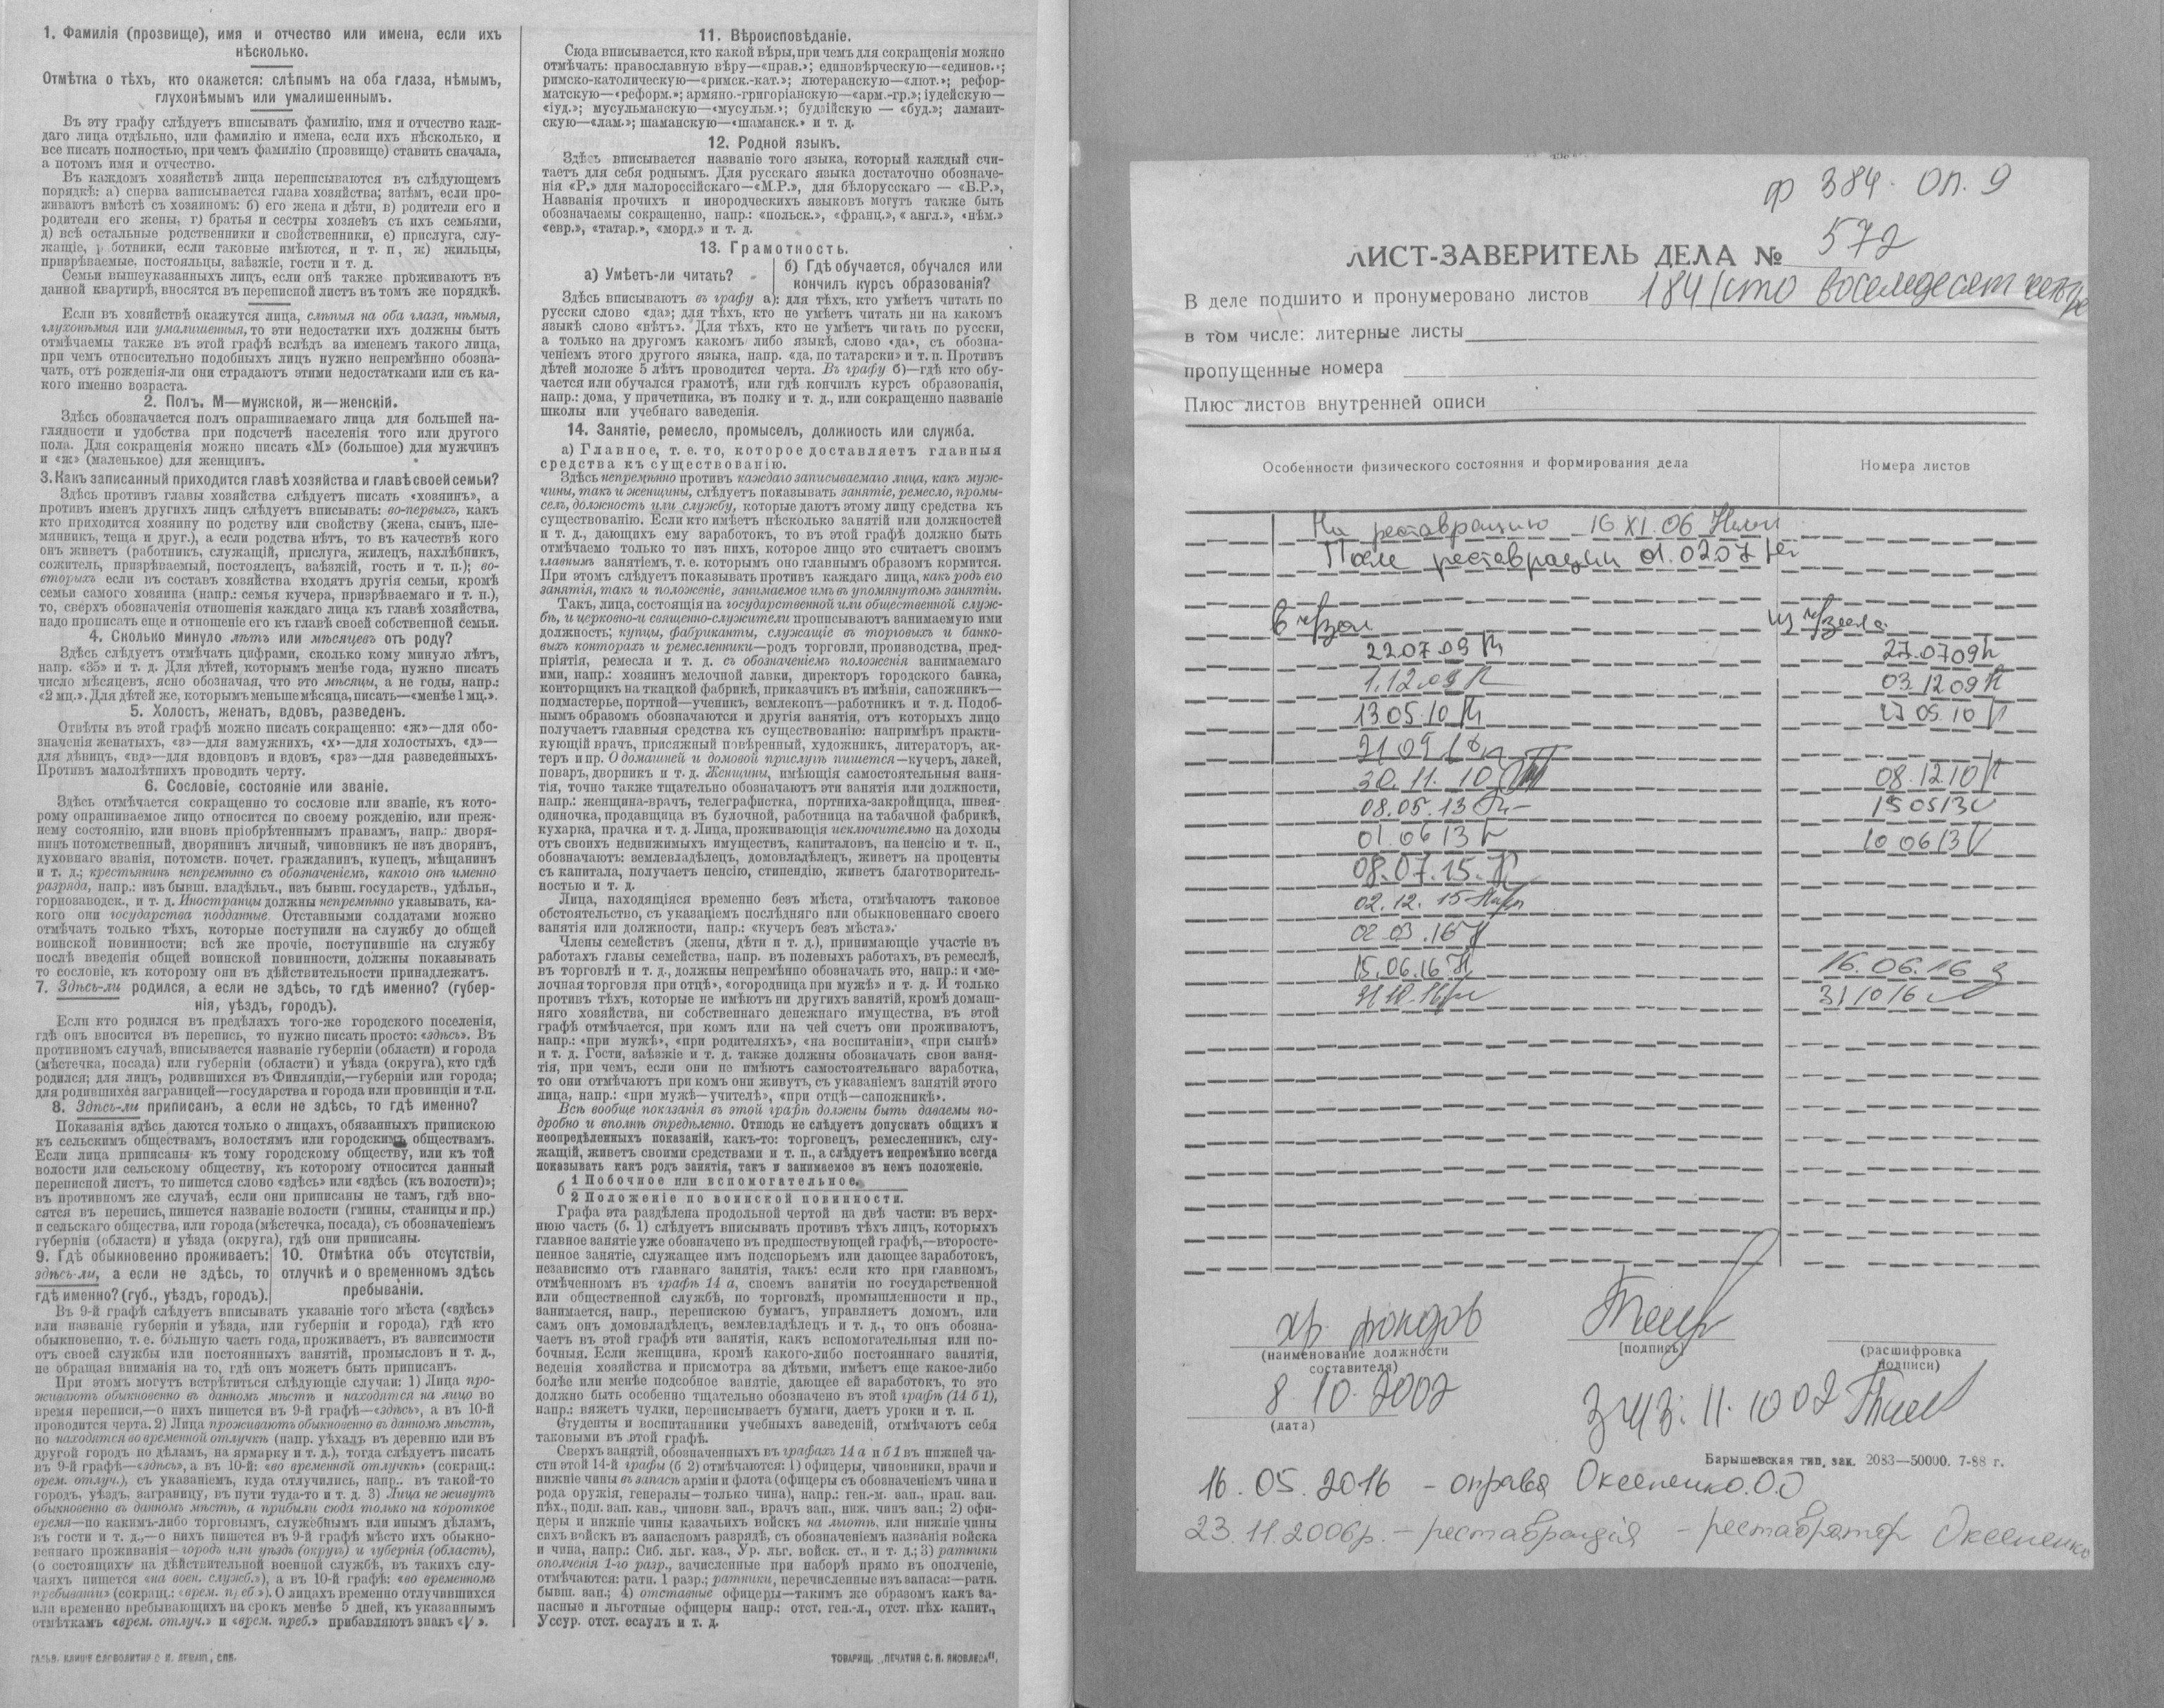 1. Фамилія (прозвище), имя и отчество или имена, если ихъ
нѣсколько.
Отмѣтка о тѣхъ, кто окажется: слѣпымъ на оба глаза, нѣмымъ,
глухонѣмымъ или умалишеннымъ.
Въ эту графу слѣдуетъ вписывать фамилію, имя и отчество каж-
даго лица отдѣльно, или фамилію и имена, если ихъ нѣсколько, и
все писать полностью, при чемъ фамилію (прозвище) ставить сначала,
а потомъ имя и отчество.
Въ каждомъ хозяйствѣ лица переписываются въ слѣдующемъ
порядкѣ: а) сперва записывается глава хозяйства; затѣмъ, если про-
живаютъ вмѣстѣ съ хозяиномъ: б) его жена и дѣти, в) родители его и
родители его жены, г) братья и сестры хозяевъ съ ихъ семьями,
д) всѣ остальные родственники и свойственники, е) прислуга, слу-
жащіе, р ботники, если таковые имѣются, и т. п, ж) жильцы,
призрѣваемые, постояльцы, заѣзжіе, гости и т. д.
Семьи вышеуказанныхъ лицъ, если онѣ также проживаютъ въ
данной квартирѣ, вносятся въ переписной листъ въ томъ же порядкѣ.
Если въ хозяйствѣ окажутся лица, слѣпыя на оба глаза, нѣмыя,
глухонѣмыя или умалишенныя, то эти недостатки ихъ должны быть
отмѣчаемы также въ этой графѣ вслѣдъ за именемъ такого лица,
при чемъ относительно подобныхъ лицъ нужно непремѣнно обозна-
чать, отъ рожденія-ли они страдаютъ этими недостатками или съ ка-
кого именно возраста.
2. Полъ. М—мужской, ж—женскій.
Здѣсь обозначается полъ опрашиваемаго лица для большей на-
глядности и удобства при подсчетѣ населенія того или другого
пола. Для сокращенія можно писать «М» (большое) для мужчинъ
и «ж» (маленькое) для женщинъ.
3. Какъ записанный приходится главѣ хозяйства и главѣ своей семьи?
Здѣсь противъ главы хозяйства слѣдуетъ писать «хозяинъ», а
противъ именъ другихъ лицъ слѣдуетъ вписывать: во-первыхъ, какъ
кто приходится хозяину по родству или свойству (жена, сынъ, пле-
мянникъ, теща и друг.), а если родства нѣтъ, то въ качествѣ кого
онъ живетъ (работникъ, служащій, прислуга, жилецъ, нахлѣбникъ,
сожитель, призрѣваемый, постоялецъ, заѣзжій, гость и т. п.); во-
вторыхъ если въ составъ хозяйства входятъ другія семьи, кромѣ
семьи самого хозяина (напр.: семья кучера, призрѣваемаго и т. п.),
то, сверхъ обозначенія отношенія каждаго лица къ главѣ хозяйства,
надо прописать еще и отношеніе его къ главѣ своей собственной семьи.
4. Сколько минуло лѣтъ или мѣсяцевъ отъ роду?
Здѣсь слѣдуетъ отмѣчать цифрами, сколько кому минуло лѣтъ,
напр. «35» и т. д. Для дѣтей, которымъ менѣе года, нужно писать
число мѣсяцевъ, ясно обозначая, что это мѣсяцы, а не годы, напр.:
«2 мц.». Для дѣтей же, которымъ меньше мѣсяца, писать—«менѣе 1 мц.».
5. Холостъ, женатъ, вдовъ, разведенъ.
Отвѣты въ этой графѣ можно писать сокращенно: «ж»—для обо-
значенія женатыхъ, «з»—для замужнихъ, «х»—для холостыхъ, «д»—
для дѣвицъ, «вд»—для вдовцовъ и вдовъ, «рз»—для разведенныхъ.
Противъ малолѣтнихъ проводить черту.
6. Сословіе, состояніе или званіе.
Здѣсь отмѣчается сокращенно то сословіе или званіе, къ кото-
рому опрашиваемое лицо относится по своему рожденію, или преж-
нему состоянію, или вновь пріобрѣтеннымъ правамъ, напр.: дворя-
нинъ потомственный, дворянинъ личный, чиновникъ не изъ дворянъ,
духовнаго званія, потомств. почет. гражданинъ, купецъ, мѣщанинъ
и т. д.; крестьянинъ непремѣнно съ обозначеніемъ, какого онъ именно
разряда, напр.: изъ бывш. владѣльч., изъ бывш. государств., удѣльн.,
горнозаводск., и т. д. Иностранцы должны непремѣнно указывать, ка-
кого они государства подданные. Отставными солдатами можно
отмѣчать только тѣхъ, которые поступили на службу до общей
воинской повинности; всѣ же прочіе, поступившіе на службу
послѣ введенія общей воинской повинности, должны показывать
то сословіе, къ которому они въ дѣйствительности принадлежатъ.
7. Здѣсь-ли родился, а если не здѣсь, то гдѣ именно? (губер-
нія, уѣздъ, городъ).
Если кто родился въ предѣлахъ того-же городского поселенія,
гдѣ онъ вносится въ перепись, то нужно писать просто: «здѣсь». Въ
противномъ случаѣ, вписывается названіе губерніи (области) и города
(мѣстечка, посада) или губерніи (области) и уѣзда (округа), кто гдѣ
родился; для лицъ, родившихся въ Финляндіи,—губерніи или города;
для родившихся заграницей—государства и города или провинціи и т.п.
8. Здѣсь-ли приписанъ, а если не здѣсь, то гдѣ именно?
Показанія здѣсь даются только о лицахъ, обязанныхъ припискою
къ сельскимъ обществамъ, волостямъ или городскимъ обществамъ.
Если лица приписаны къ тому городскому обществу, или къ той
волости или сельскому обществу, къ которому относится данный
переписной листъ, то пишется слово «здѣсь» или «здѣсь (къ волости)»;
въ противномъ же случаѣ, если они приписаны не тамъ, гдѣ вно-
сятся въ перепись, пишется названіе волости (гмины, станицы и пр.)
и сельскаго общества, или города (мѣстечка, посада), съ обозначеніемъ
губерніи (области) и уѣзда (округа), гдѣ они приписаны.
9. Гдѣ обыкновенно проживаетъ:
здѣсь-ли, а если не здѣсь, то
гдѣ именно? (губ., уѣздъ, городъ).
10. Отмѣтка объ отсутствіи,
отлучкѣ и о временномъ здѣсь
пребываніи.
Въ 9-й графѣ слѣдуетъ вписывать указаніе того мѣста («здѣсь»
или названіе губерніи и уѣзда, или губерніи и города), гдѣ кто
обыкновенно, т. е. бо́льшую часть года, проживаетъ, въ зависимости
отъ своей службы или постоянныхъ занятій, промысловъ и т. д.,
не обращая вниманія на то, гдѣ онъ можетъ быть приписанъ.
При этомъ могутъ встрѣтиться слѣдующіе случаи: 1) Лица про-
живаютъ обыкновенно въ данномъ мѣстѣ и находятся на лицо во
время переписи,—о нихъ пишется въ 9-й графѣ—«здѣсь», а въ 10-й
проводится черта. 2) Лица проживаютъ обыкновенно въ данномъ мѣстѣ,
но находятся во временной отлучкѣ (напр. уѣхалъ въ деревню или въ
другой городъ по дѣламъ, на ярмарку и т. д.), тогда слѣдуетъ писать
въ 9-й графѣ—«здѣсь», а въ 10-й: «во временной отлучкѣ» (сокращ.:
врем. отлуч.), съ указаніемъ, куда отлучились, напр.. въ такой-то
городъ, уѣздъ, заграницу, въ пути туда-то и т. д. 3) Лица не живутъ
обыкновенно въ данномъ мѣстѣ, а прибыли сюда только на короткое
время—по какимъ-либо торговымъ, служебнымъ или инымъ дѣламъ,
въ гости и т. д.,—о нихъ пишется въ 9-й графѣ мѣсто ихъ обыкно-
веннаго проживанія—городъ или уѣздъ (округъ) и губернія (область),
(о состоящихъ на дѣйствительной военной службѣ, въ такихъ слу-
чаяхъ пишется «на воен. службѣ»), а въ 10-й графѣ: «во временномъ
пребываніи» (сокращ.: «врем. преб »). О лицахъ временно отлучившихся
или временно пребывающихъ на срокъ менѣе 5 дней, къ указаннымъ
отмѣткамъ «врем. отлуч.» и «врем. преб.» прибавляютъ знакъ «V».
11. Вѣроисповѣданіе.
Сюда вписывается, кто какой вѣры, при чемъ для сокращенія можно
отмѣчать: православную вѣру—«прав.»; единовѣрческую—«единов.»;
римско-католическую—«римск.-кат.»; лютеранскую—«лют.»; рефор-
матскую—«реформ.»; армяно.-григоріанскую—«арм.-гр.»; іудейскую—
«іуд.»; мусульманскую—«мусульм.»; буддійскую — «буд.»; ламаит-
скую—«лам.»; шаманскую—«шаманск.» и т. д.
12. Родной языкъ.
Здѣсь вписывается названіе того языка, который каждый счи-
таетъ для себя роднымъ. Для русскаго языка достаточно обозначе-
нія «Р.» для малороссійскаго—«М.Р.», для бѣлорусскаго — «Б.Р.»,
Названія прочихъ и инородческихъ языковъ могутъ также быть
обозначаемы сокращенно, напр.: «польск.», «франц.», « англ.», «нѣм.»
«евр.», «татар.», «морд.» и т. д.
13. Грамотность.
а) Умѣетъ-ли читать?
б) Гдѣ обучается, обучался или
кончилъ курсъ образованія?
Здѣсь вписываютъ въ графу а): для тѣхъ, кто умѣетъ читать по
русски слово «да»; для тѣхъ, кто не умѣетъ читать ни на какомъ
языкѣ слово «нѣтъ». Для тѣхъ, кто не умѣетъ читать по русски,
а только на другомъ какомъ либо языкѣ, слово «да», съ обозна-
ченіемъ этого другого языка, напр. «да, по татарски» и т. п. Противъ
дѣтей моложе 5 лѣтъ проводится черта. Въ графу б)—гдѣ кто обу-
чается или обучался грамотѣ, или гдѣ кончилъ курсъ образованія,
напр.: дома, у причетника, въ полку и т. д., или сокращенно названіе
школы или учебнаго заведенія.
14. Занятіе, ремесло, промыселъ, должность или служба.
а) Главное, т. е. то, которое доставляетъ главныя
средства къ существованію.
Здѣсь непремѣнно противъ каждаго записываемаго лица, какъ муж-
чины, такъ и женщины, слѣдуетъ показывать занятіе, ремесло, промы-
селъ, должность или службу, которые даютъ этому лицу средства къ
существованію. Если кто имѣетъ нѣсколько занятій или должностей
и т. д., дающихъ ему заработокъ, то въ этой графѣ должно быть
отмѣчаемо только то изъ нихъ, которое лицо это считаетъ своимъ
главнымъ занятіемъ, т. е. которымъ оно главнымъ образомъ кормится.
При этомъ слѣдуетъ показывать противъ каждаго лица, какъ родъ его
занятія, такъ и положеніе, занимаемое имъ въ упомянутомъ занятіи.
Такъ, лица, состоящія на государственной или общественной служ-
бѣ, и церковно-и священно-служители прописываютъ занимаемую ими
должность; купцы, фабриканты, служащіе въ торговыхъ и банко-
выхъ конторахъ и ремесленники—родъ торговли, производства, пред-
пріятія, ремесла и т. д. съ обозначеніемъ положенія занимаемаго
ими, напр.: хозяинъ мелочной лавки, директоръ городского банка,
конторщикъ на ткацкой фабрикѣ, приказчикъ въ имѣніи, сапожникъ—
подмастерье, портной—ученикъ, землекопъ—работникъ и т. д. Подоб-
нымъ образомъ обозначаются и другія занятія, отъ которыхъ лицо
получаетъ главныя средства къ существованію: напримѣръ практи-
кующій врачъ, присяжный повѣренный, художникъ, литераторъ, ак-
теръ и пр. О домашней и домовой прислугѣ пишется—кучеръ, лакей,
поваръ, дворникъ и т. д. Женщины, имѣющія самостоятельныя заня-
тія, точно также тщательно обозначаютъ эти занятія или должности,
напр.: женщина-врачъ, телеграфистка, портниха-закройщица, швея-
одиночка, продавщица въ булочной, работница на табачной фабрикѣ,
кухарка, прачка и т. д. Лица, проживающія исключительно на доходы
отъ своихъ недвижимыхъ имуществъ, капиталовъ, на пенсію и т. п.,
обозначаютъ: землевладѣлецъ, домовладѣлецъ, живетъ на проценты
съ капитала, получаетъ пенсію, стипендію, живетъ благотворитель-
ностью и т. д.
Лица, находящіяся временно безъ мѣста, отмѣчаютъ таковое
обстоятельство, съ указаніемъ послѣдняго или обыкновеннаго своего
занятія или должности, напр.: «кучеръ безъ мѣста».
Члены семействъ (жены, дѣти и т. д.), принимающіе участіе въ
работахъ главы семейства, напр. въ полевыхъ работахъ, въ ремеслѣ,
въ торговлѣ и т. д., должны непремѣнно обозначать это, напр.: и «ме-
лочная торговля при отцѣ», «огородница при мужѣ» и т. д. И только
противъ тѣхъ, которые не имѣютъ ни другихъ занятій, кромѣ домаш-
няго хозяйства, ни собственнаго денежнаго имущества, въ этой
графѣ отмѣчается, при комъ или на чей счетъ они проживаютъ,
напр.: «при мужѣ», «при родителяхъ», «на воспитаніи», «при сынѣ»
и т. д. Гости, заѣзжіе и т. д. также должны обозначать свои заня-
тія, при чемъ, если они не имѣютъ самостоятельнаго заработка,
то они отмѣчаютъ при комъ они живутъ, съ указаніемъ занятій этого
лица, напр.: «при мужѣ—учителѣ», «при отцѣ—сапожникѣ».
Всѣ вообще показанія въ этой графѣ должны быть даваемы по-
дробно и вполнѣ опредѣленно. Отнюдь не слѣдуетъ допускать общихъ и
неопредѣленныхъ показаній, какъ-то: торговецъ, ремесленникъ, слу-
жащій, живетъ своими средствами и т. п., а слѣдуетъ непремѣнно всегда
показывать какъ родъ занятія, такъ и занимаемое въ немъ положеніе.
б 1 Побочное или вспомогательное.
2 Положеніе по воинской повинности.
Графа эта раздѣлена продольной чертой на двѣ части: въ верх-
нюю часть (б. 1) слѣдуетъ вписывать противъ тѣхъ лицъ, которыхъ
главное занятіе уже обозначено въ предшествующей графѣ,—второсте-
пенное занятіе, служащее имъ подспорьемъ или дающее заработокъ,
независимо отъ главнаго занятія, такъ: если кто при главномъ,
отмѣченномъ въ графѣ 14 а, своемъ занятіи по государственной
или общественной службѣ, по торговлѣ, промышленности и пр.,
занимается, напр., перепискою бумагъ, управляетъ домомъ, или
самъ онъ домовладѣлецъ, землевладѣлецъ и т. д., то онъ обозна-
чаетъ въ этой графѣ эти занятія, какъ вспомогательныя или по-
бочныя. Если женщина, кромѣ какого-либо постояннаго занятія,
веденія хозяйства и присмотра за дѣтьми, имѣетъ еще какое-либо
болѣе или менѣе подсобное занятіе, дающее ей заработокъ, то это
должно быть особенно тщательно обозначено въ этой графѣ (14 б 1),
напр.: вяжетъ чулки, переписываетъ бумаги, даетъ уроки и т. п.
Студенты и воспитанники учебныхъ заведеній, отмѣчаютъ себя
таковыми въ этой графѣ.
Сверхъ занятій, обозначенныхъ въ графахъ 14 а и б 1 въ нижней ча-
сти этой 14-й графы (б 2) отмѣчаются: 1) офицеры, чиновники, врачи и
нижніе чины въ запасѣ арміи и флота (офицеры съ обозначеніемъ чина и
рода оружія, генералы—только чина), напр.: ген.-м. зап., прап. зап.
пѣх., подп. зап. кав., чиновн. зап., врач. зап., ниж. чинъ зап.; 2) офи-
церы и нижніе чины казачьихъ войскъ на льготѣ, или нижніе чины
сихъ войскъ въ запасномъ разрядѣ, съ обозначеніемъ названія войска
и чина, напр.: Сиб. льг. каз., Ур. льг. войск. ст., и т. д.; 3) ратники
ополченія 1-го разр., зачисленные при наборѣ прямо въ ополченіе,
отмѣчаются: ратн. 1 разр.; ратники, перечисленные изъ запаса:—ратн.
бывш. зап.; 4) отставные офицеры—такимъ же образомъ какъ за-
пасные и льготные офицеры напр.: отст. ген.-л., отст. пѣх. капит.,
Уссур. отст. есаулъ и т. д.
ТОВАРИЩ. „ПЕЧАТНЯ С. П. ЯКОВЛЕВА“.
ф 384 оп. 9
ЛИСТ-ЗАВЕРИТЕЛЬ ДЕЛА № 572
В деле подшито и пронумеровано листов 184 (сто восемдесят четыре
в том числе: литерные листы
пропущенные номера
Плюс листов внутренней описи
Особенности физического состояния и формирования дела
Номера листов
На реставрацию 16 XI.06
После реставрации 01.02.07
в ч/зал из ч/зала
22.07.09 27.07.09
1.12.09 03.12.09
13.05.10 27.05.10
21.09.10
30.11.10 08.12.10
08.05.13 15.05.13
01.06.13 10.06.13
08.07.15
02.12.15
02.03.16
15.06.16 16.06.16
31.10.16 31.10.16
хр. фондов
(наименование должности
составителя)
(подпись)
(расшифровка
подписи)
8.10.2002
(дата)
11.10.02
Барышевская тип, зак. 2083—50000. 7-88 г.
16.05.2016 – оправа Оксененко.О.О
23.11.2006р. – реставрація – реставратор Оксененко